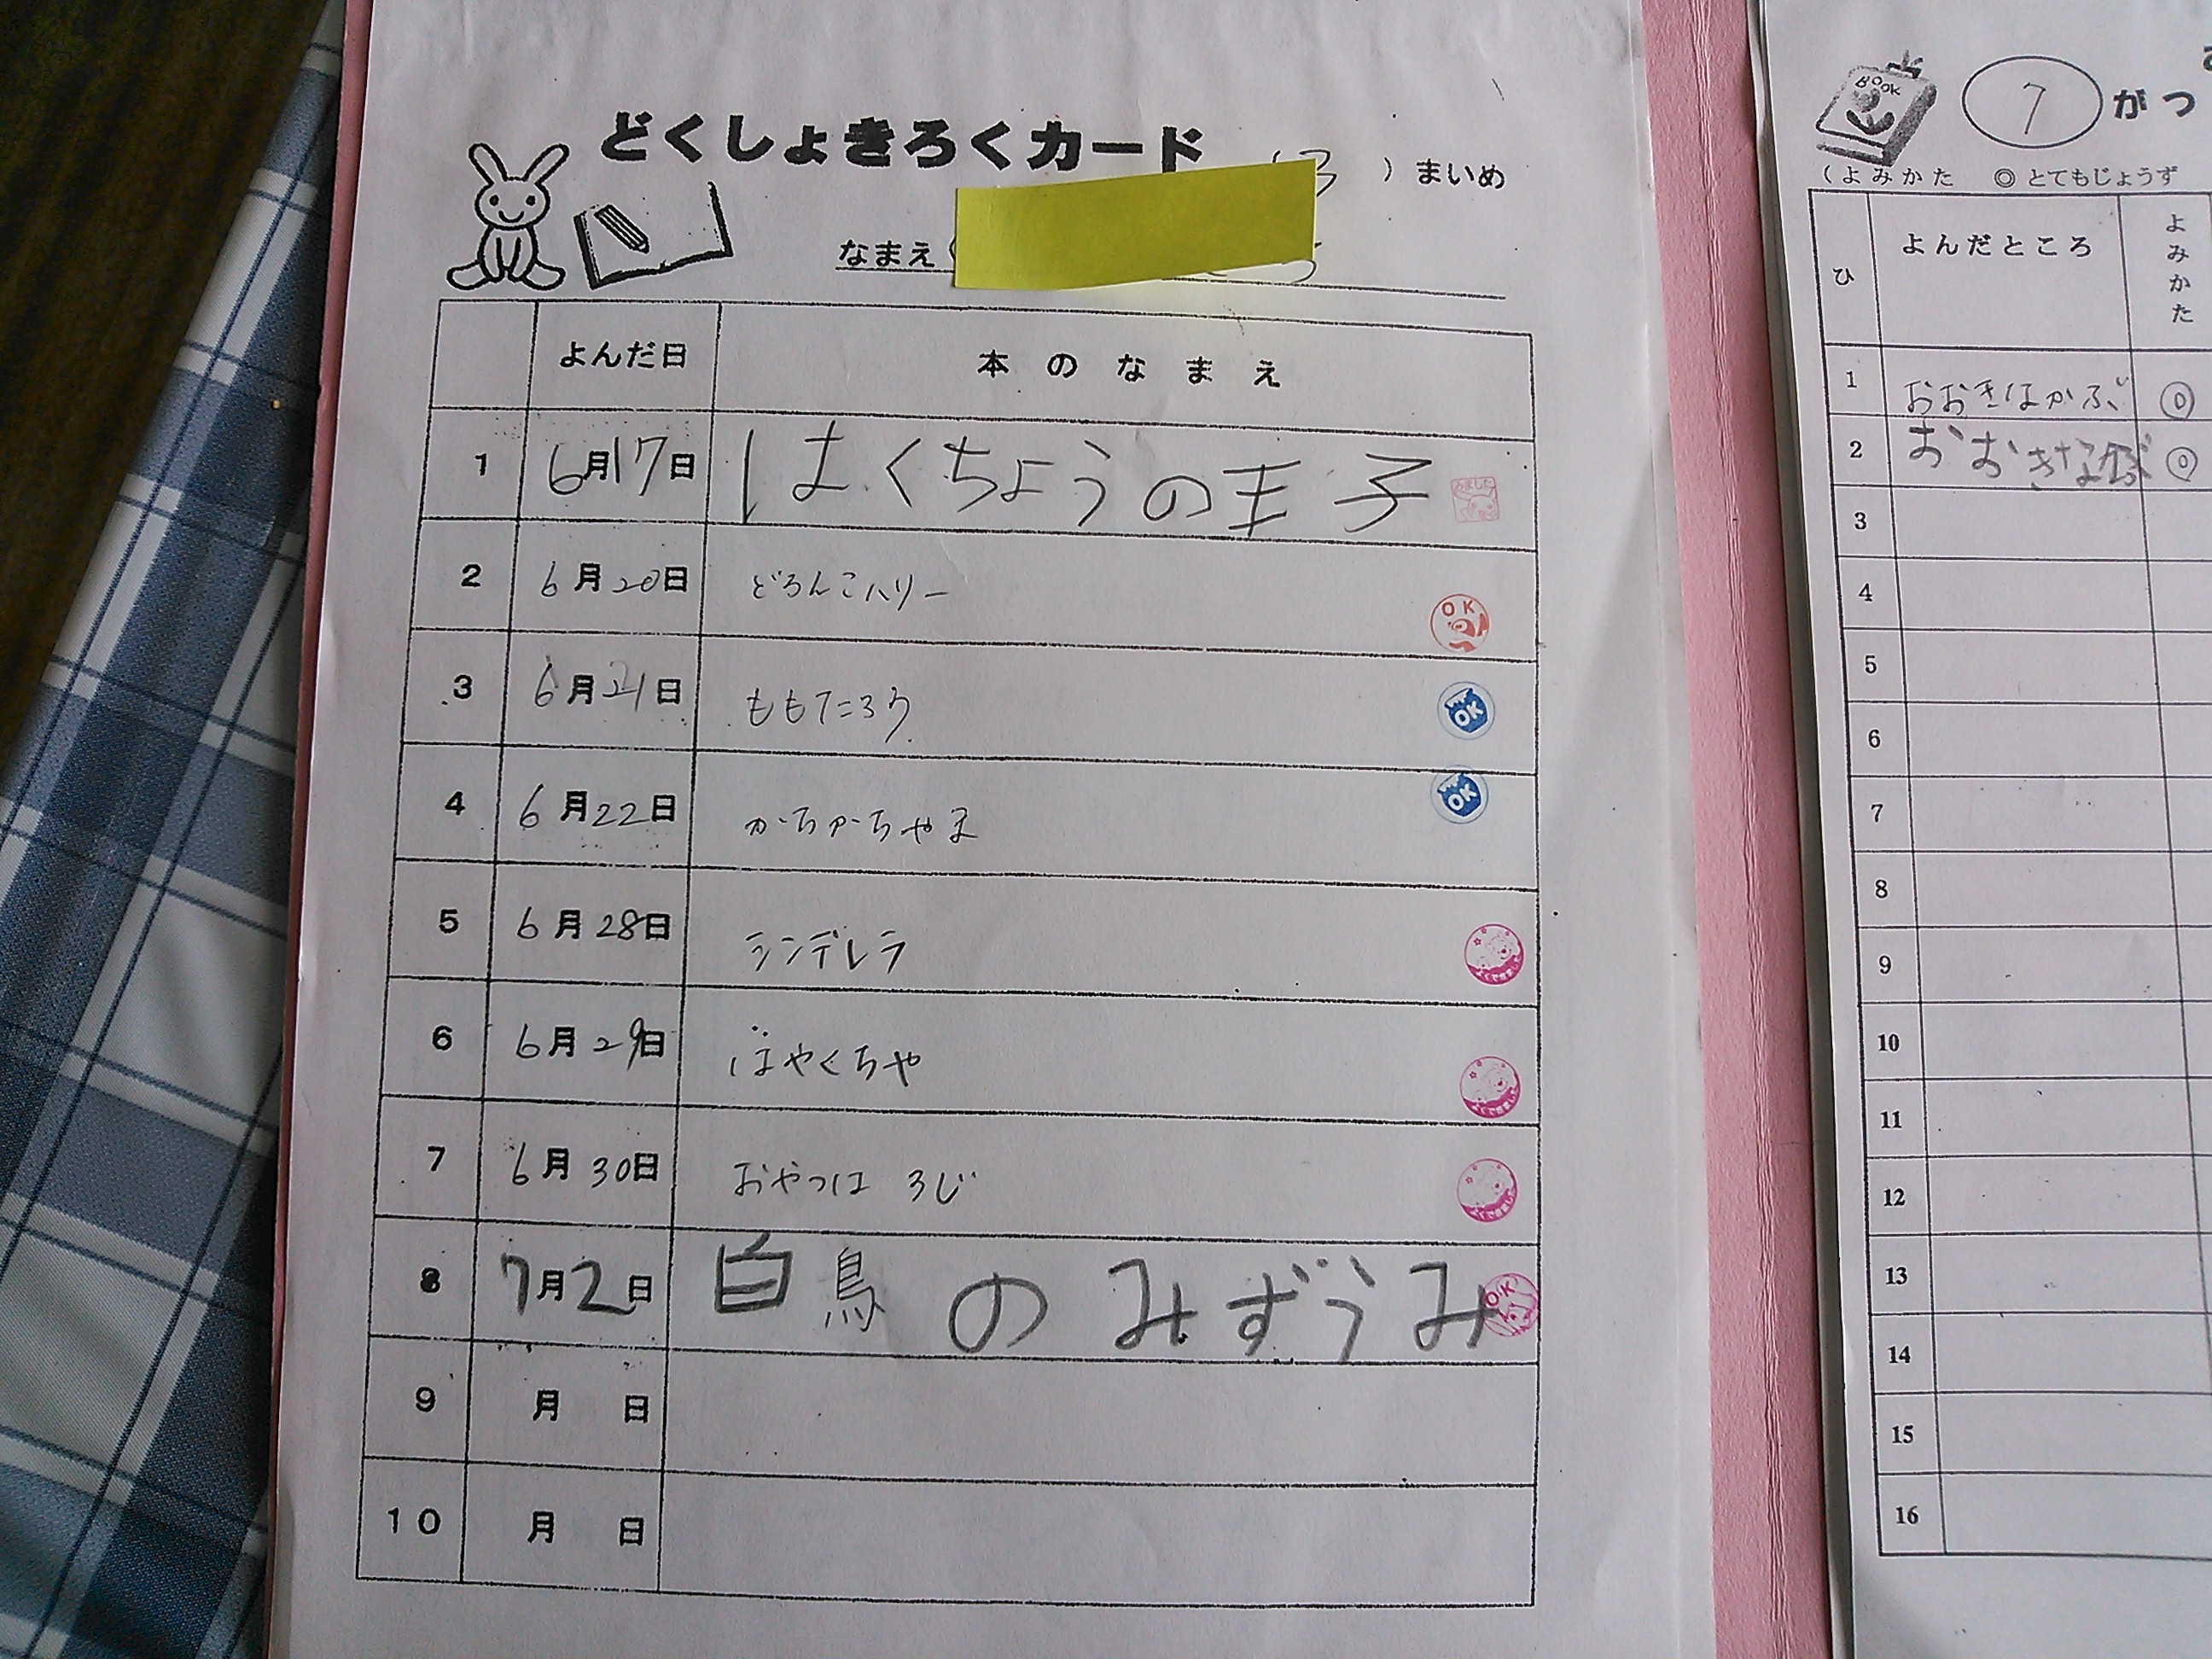 どくしょきろくカード
(3)まいめ
なまえ
よんだ日 本のなまえ
1 6月17日 はくちょうの王子 みました
2 6月20日 どろんこハリー OK
3 6月21日 ももたろう OK
4 6月22日 かちかちやま OK
5 6月28日 シンデレラ
6 6月29日 ばやくちや
7 6月30日 おやつは 3じ
8 7月2日 白鳥のみずうみ OK
9 月 日
10 月 日
BOOK
7 がつ
(よみかた ◎とてもじょうず
ひ よんだところ よみかた
1 おおきなかぶ ◎
2 おおきなかぶ ◎
3
4
5
6
7
8
9
10
11
12
13
14
15
16